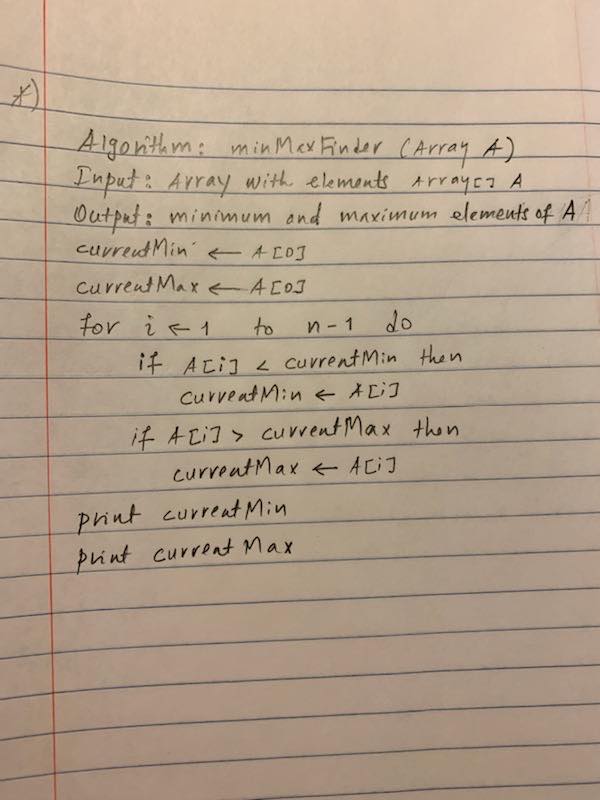 *)
Algorithm: minMaxFinder (Array A)
Input: Array with elements Array[] A
Output: minimum and maximum elements of A
currentMin ← A[0]
currentMax ← A[0]
for i ← 1 to n-1 do
if A[i] < currentMin then
currentMin ← A[i]
if A[i] > currentMax then
currentMax ← A[i]
print currentMin
print currentMax